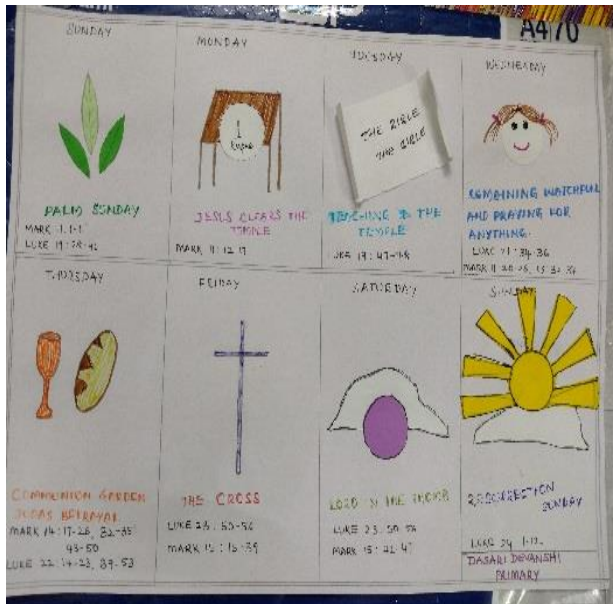 A4 70
SUNDAY
PALM SUNDAY
MARK 11:1-1
LUKE 19:28-42
MONDAY
1
JESUS CLEARS THE
TEMPLE
MARK 11:12-19
TUESDAY
THE BIBLE
THE BIBLE
TEACHING IN THE
TEMPLE
LUKE 19:47-48
WEDNESDAY
REMAINING WATCHFUL
AND PRAYING FOR
ANYTHING.
LUKE 21:34-36
MARK
THURSDAY
COMMUNION GARDEN
JUDAS BETRAYAL
MARK 14:17-26, 32-35
43-50
LUKE 22:14-23, 39-53
FRIDAY
THE CROSS
LUKE 23:
MARK 15:15-39
SATURDAY
LORD IN THE TOMB
LUKE 23:50-56
MARK 15:21-47
SUNDAY
RESURRECTION
SUNDAY
LUKE 24:1-12
DASARI DEVANSHI
PRIMARY